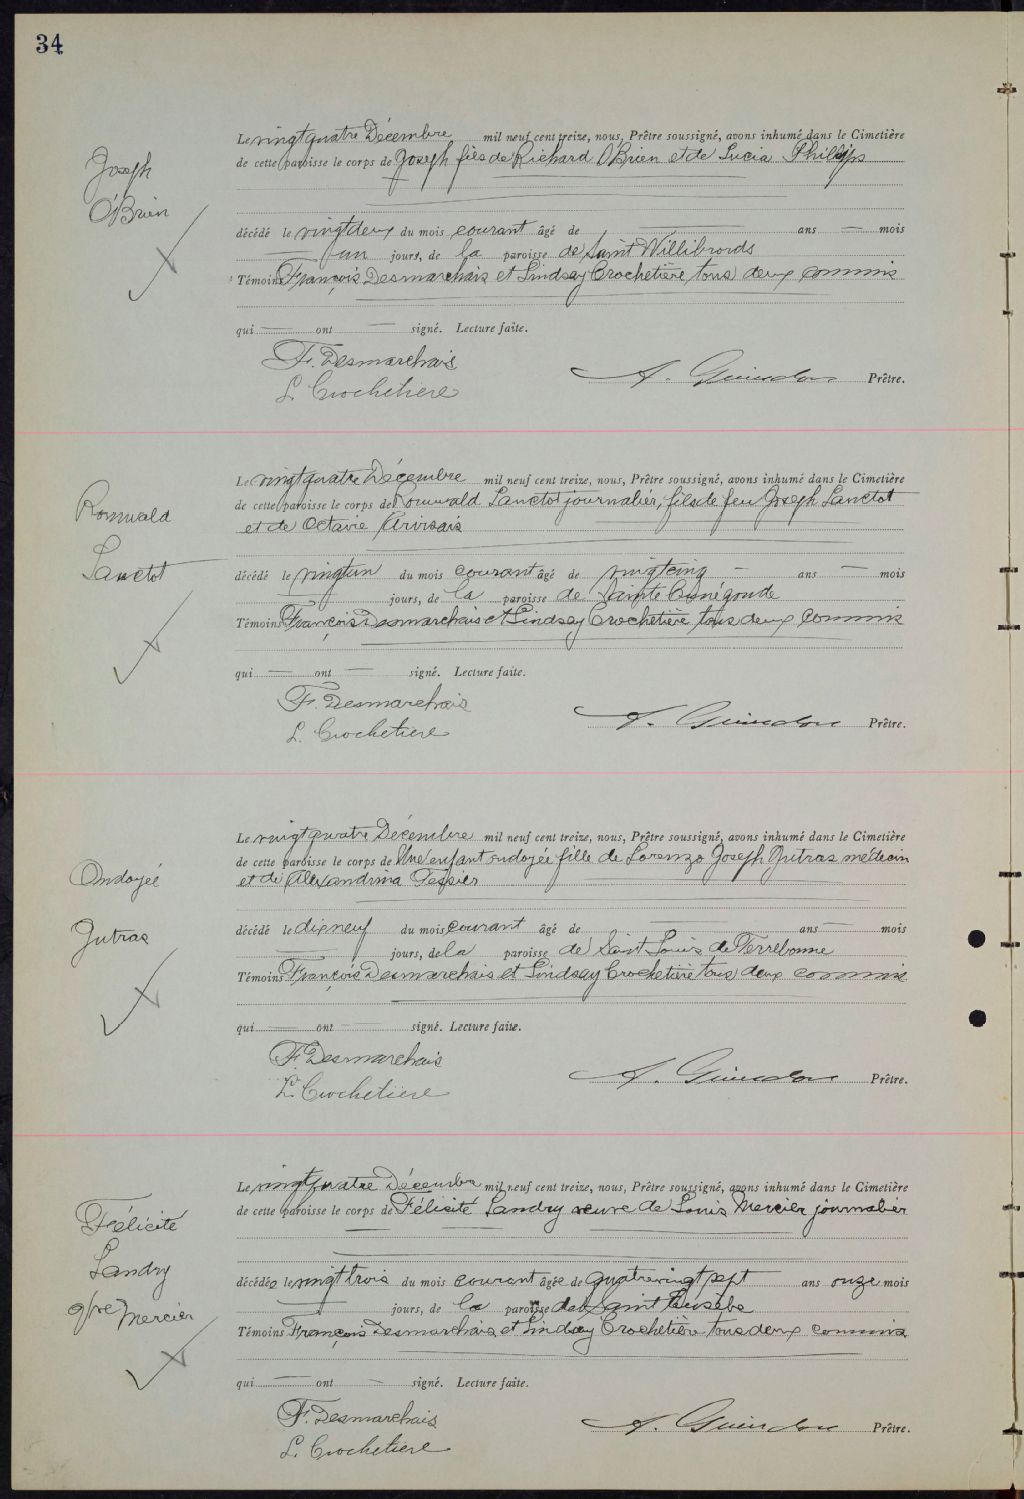 34
Joseph
O'Brien
Le vingtquatre Décembre mil neuf cent treize, nous, Prêtre soussigné, avons inhumé dans le Cimetière
de cette paroisse le corps de Joseph fils de Richard O'Brien et de Lucia Phillips
décédé le vingtdeux du mois courant âgé de — ans — mois
— un jours, de la paroisse de Saint Willibrords
Témoins François Desmarchais et Lindsay Crochetière tous deux commis
qui — ont — signé. Lecture faite.
F. Desmarchais
L. Crochetiere
A. Guindon Prêtre.
Romuald
Lanctot
Le vingtquatre Décembre mil neuf cent treize, nous, Prêtre soussigné, avons inhumé dans le Cimetière
de cette paroisse le corps de Romuald Lanctot journalier, fils de feu Joseph Lanctot
et de Octavie Arvisais
décédé le vingtun du mois courant âgé de vingtcinq — ans — mois
— jours, de la paroisse de Sainte Cunégonde
Témoins François Desmarchais et Lindsay Crochetière tous deux commis
qui — ont — signé. Lecture faite.
F. Desmarchais
L. Crochetiere
A. Guindon Prêtre.
Ondoyée
Jutras
Le vingtquatre Décembre mil neuf cent treize, nous, Prêtre soussigné, avons inhumé dans le Cimetière
de cette paroisse le corps de Une enfant ondoyée fille de Lorenzo Joseph Jutras médecin
et de Alexandrina Tessier
décédé le dixneuf du mois courant âgé de — ans — mois
— jours, de la paroisse de Saint Louis de Terrebonne
Témoins François Desmarchais et Lindsay Crochetière tous deux commis
qui — ont — signé. Lecture faite.
F. Desmarchais
L. Crochetiere
A. Guindon Prêtre.
Félicité
Landry
Mercier
Le vingtquatre Décembre mil neuf cent treize, nous, Prêtre soussigné, avons inhumé dans le Cimetière
de cette paroisse le corps de Félicité Landry veuve de Louis Mercier journalier
décédée le vingttrois du mois courant âgée de quatrevingtsept ans onze mois
— jours, de la paroisse de Saint Eusèbe
Témoins François Desmarchais et Lindsay Crochetière tous deux commis
qui — ont — signé. Lecture faite.
F. Desmarchais
L. Crochetiere
A. Guindon Prêtre.